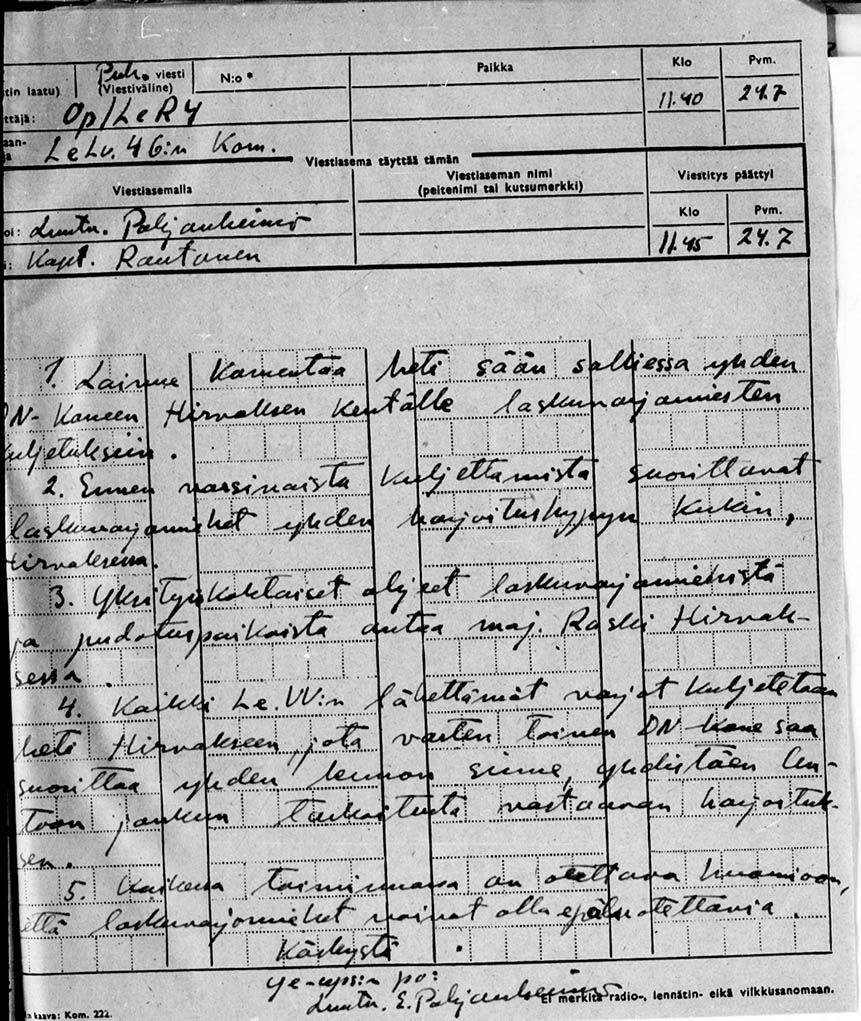 Puh. viesti N:o Paikka Klo Pvm.
tin laatu) (Viestiväline) 11.40 24.7
ttäjä: Op/LeR4
aan- LeLv. 46:n Kom.
Viestiasema täyttää tämän
Viestiasemalla Viestiaseman nimi Viestitys päättyi
(peitenimi tai kutsumerkki)
Klo Pvm.
oi: Luutn. Pohjanheimo
: Kapt. Rautanen 11.45 24.7
1. Laivue komentaa heti sään salliessa yhden
DN-koneen Hirvaksen kentälle laskuvarjomiesten
kuljetuksiin.
2. Ennen varsinaista kuljettamista suorittavat
laskuvarjomiehet yhden harjoitushypyn kukin,
Hirvaksessa.
3. Yksityiskohtaiset ohjeet laskuvarjomiehistä
ja pudotuspaikoista antaa maj. Raski Hirvak-
sessa.
4. Kaikki Le.VV:n lähettämät varjot kuljetetaan
heti Hirvakseen, jota varten toinen DN-kone saa
suorittaa yhden lennon sinne, yhdistäen len-
toon jonkun tarkoitusta vastaavan harjoituk-
sen.
5. Kaikessa toiminnassa on otettava huomioon,
että laskuvarjomiehet voivat olla epäluotettavia.
Käskystä
Luutn. E. Pohjanheimo
Ei merkitä radio-, lennätin- eikä vilkkusanomaan.
kaava: Kom. 222.